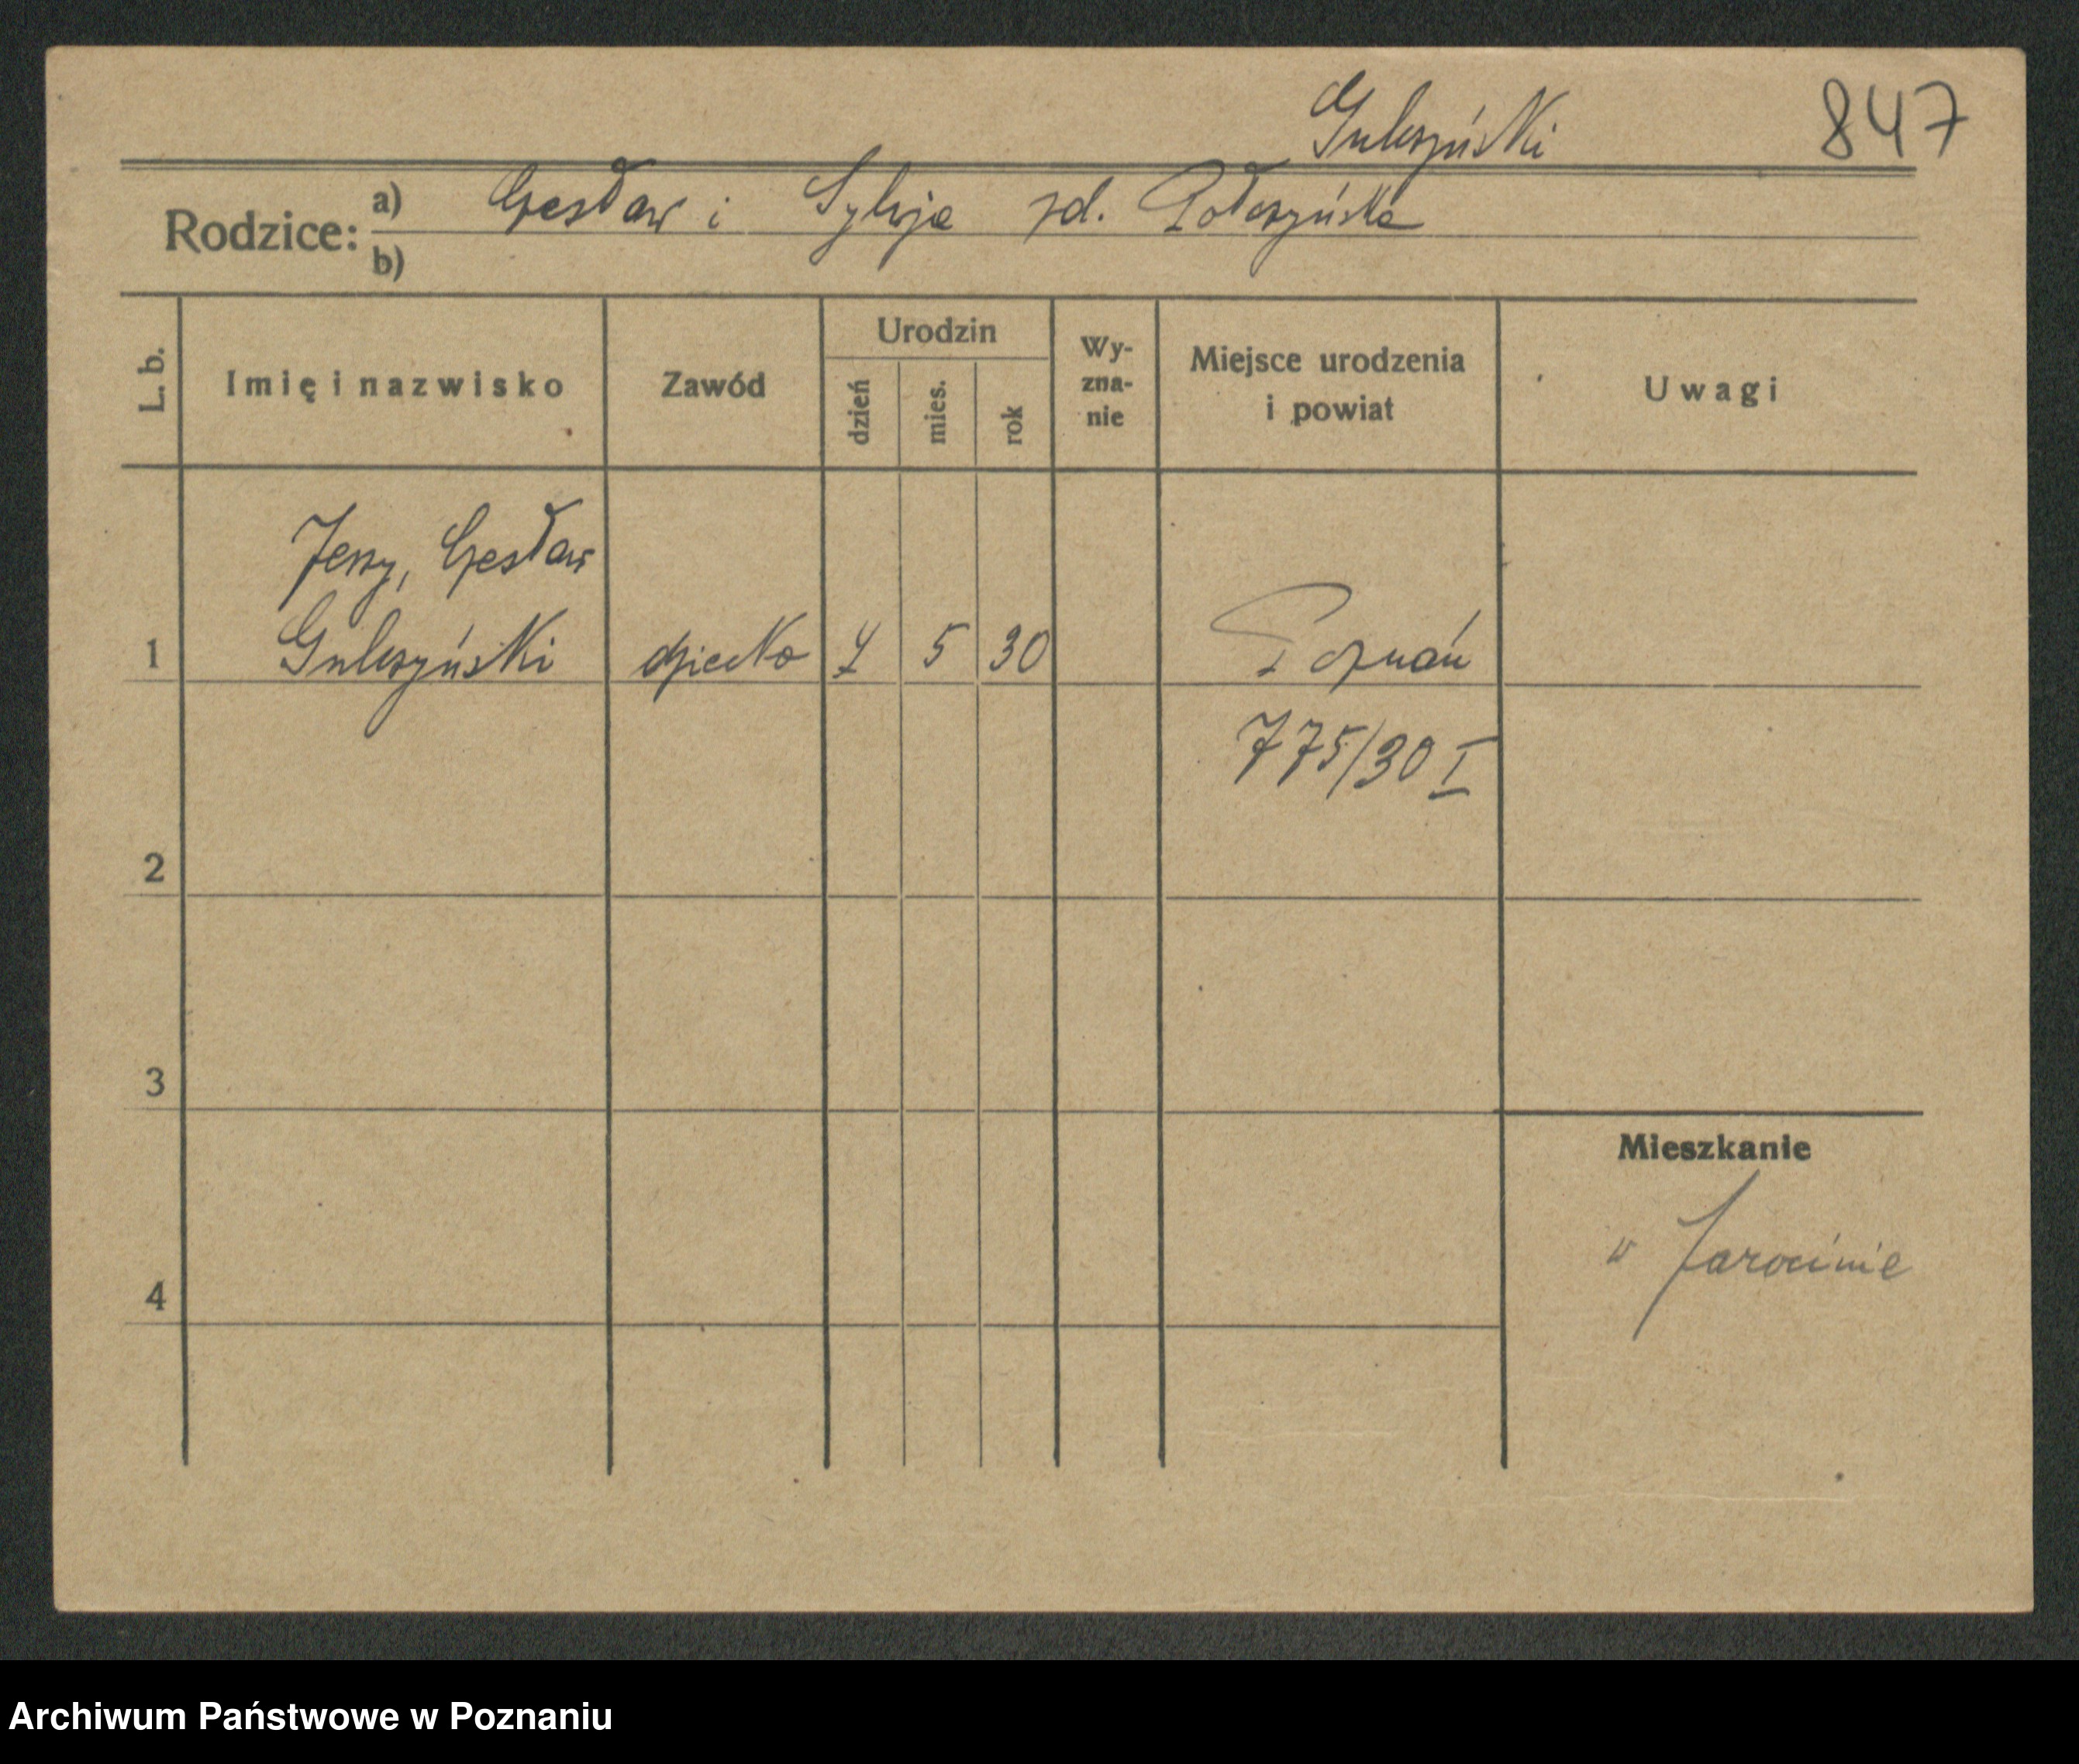 Gulczyński 847
Rodzice: a) Czesław i Sylwja zd. Połczyńska
b)
L. b. Imię i nazwisko Zawód Urodzin dzień mies. rok Wy-
zna-
nie Miejsce urodzenia
i powiat Uwagi
Jerzy, Czesław
1 Gulczyński dziecko 7 5 30 Poznań
775/30 I
2
3
Mieszkanie
w Jarocinie
4
Archiwum Państwowe w Poznaniu